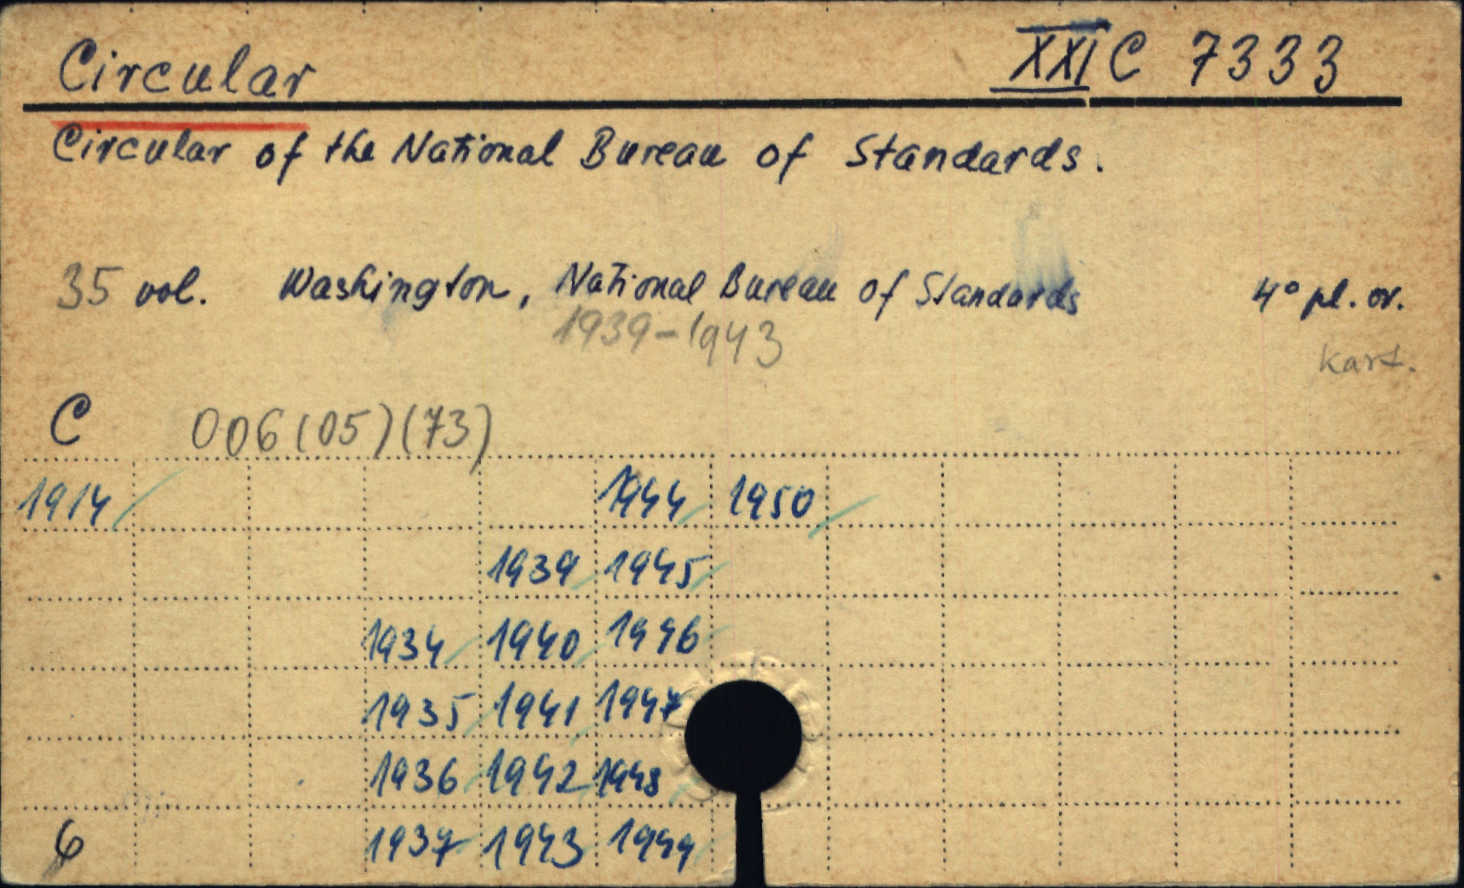 Circular XXI C 7333
Circular of the National Bureau of Standards.
35 vol. Washington, National Bureau of Standards 4° pl. or.
1939-1943
kart.
C 006(05)(73)
1914 1944 1950
1939 1945
1934 1940 1946
1935 1941 1947
1936 1942 1948
1937 1943 1949